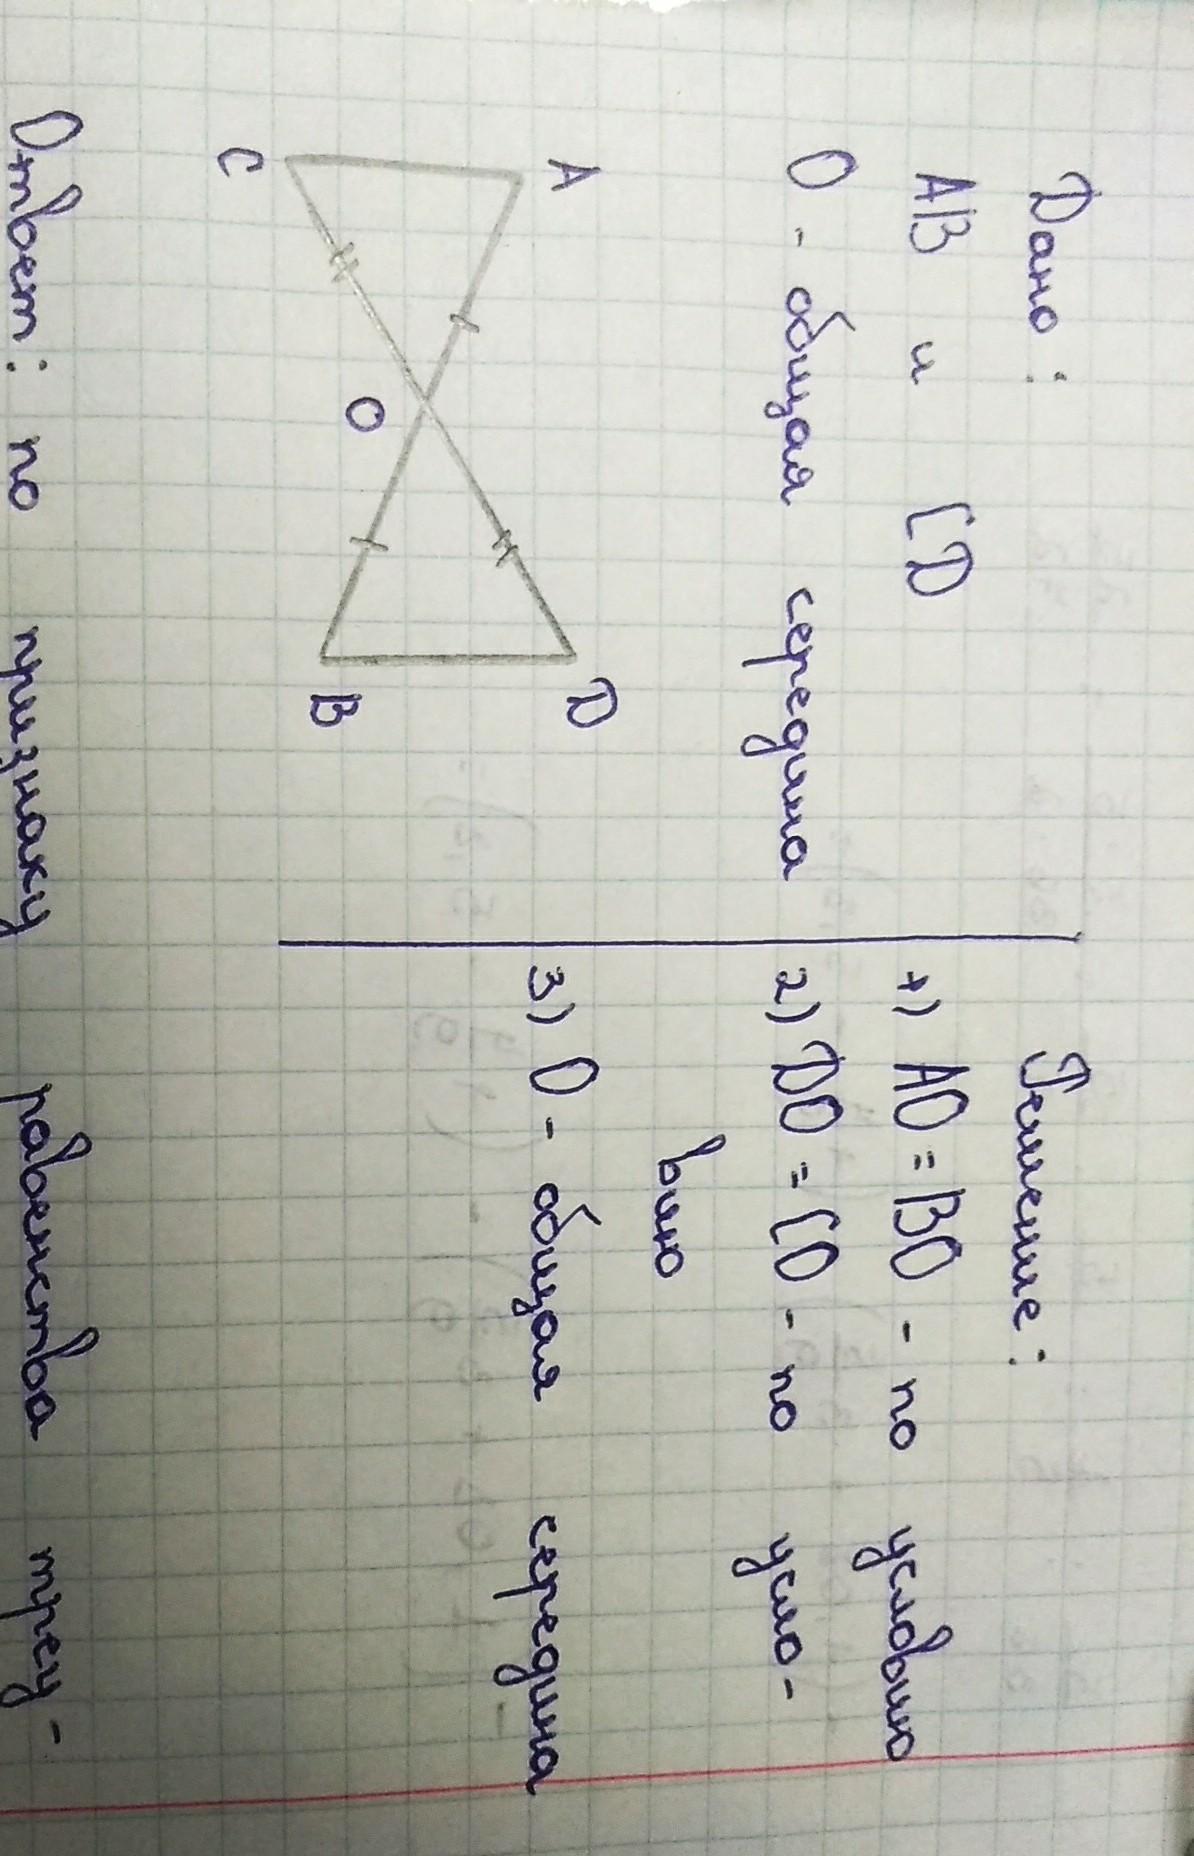 Дано:
AB и CD
O - общая середина
A
C
O
D
B
Решение:
1) AO = BO - по условию
2) DO = CO - по усло-
вию
3) O - общая середина
Ответ: по признаку равенства треу-